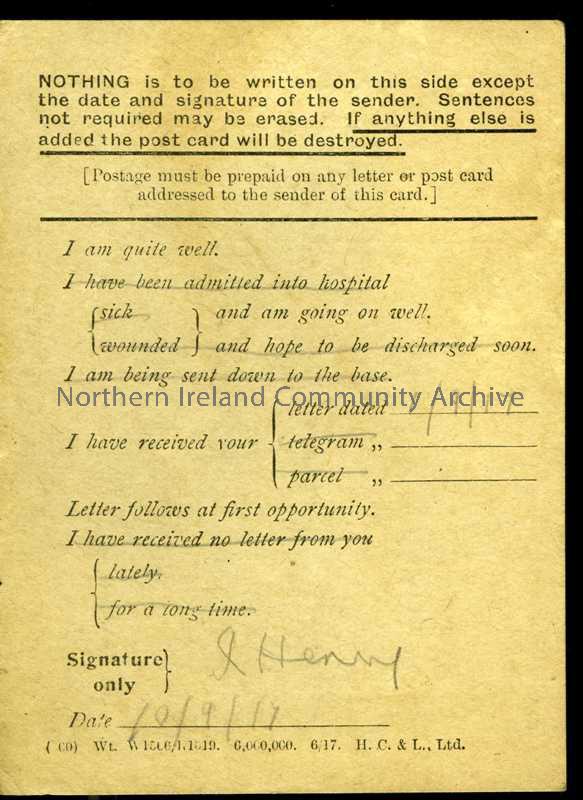 NOTHING is to be written on this side except
the date and signature of the sender. Sentences
not required may be erased. If anything else is
added the post card will be destroyed.
[Postage must be prepaid on any letter or post card
addressed to the sender of this card.]
I am quite well.
I have been admitted into hospital
{ sick } and am going on well.
{ wounded } and hope to be discharged soon.
I am being sent down to the base.
Northern Ireland Community Archive
letter dated
I have received your { telegram „
parcel „
Letter follows at first opportunity.
I have received no letter from you
{ lately.
for a long time.
Signature } Henry
only
Date 10/9/17
Wt. 6,000,000. 6/17. H. C. & L., Ltd.